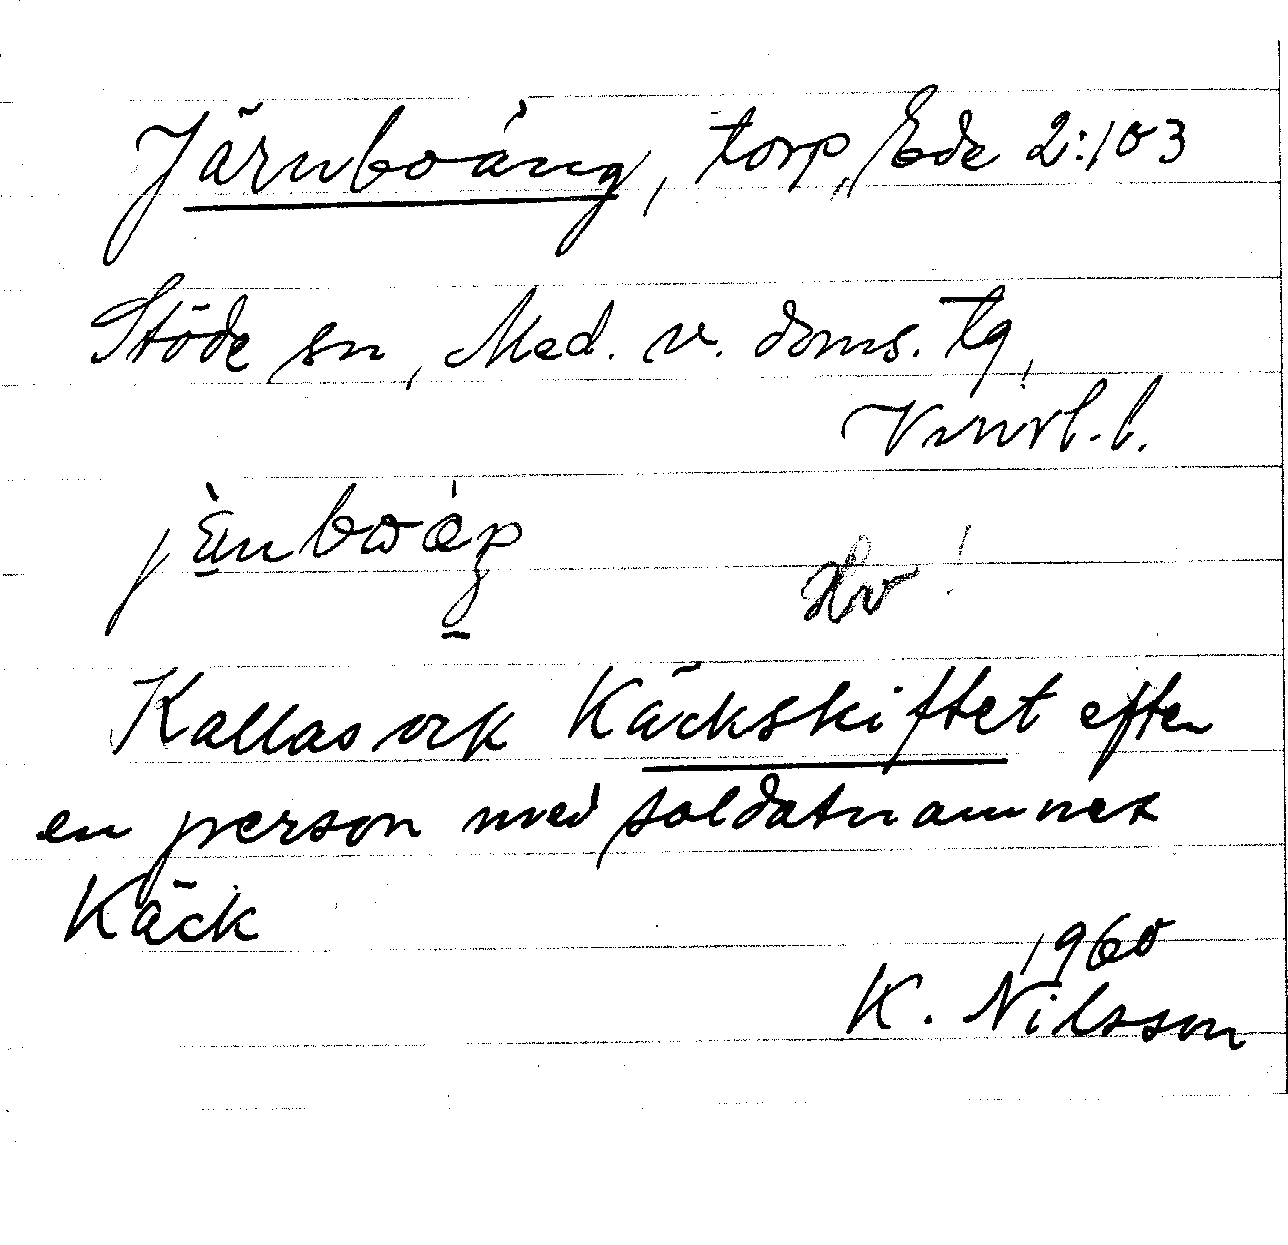 Järnboäng, torp, Ede 2:103
Stöde sn, Med. v. doms. tg,
Vnrl. l.
Kallas ock Käckskiftet efter
en person med soldatnamnet
Käck
1960
K. Nilsson